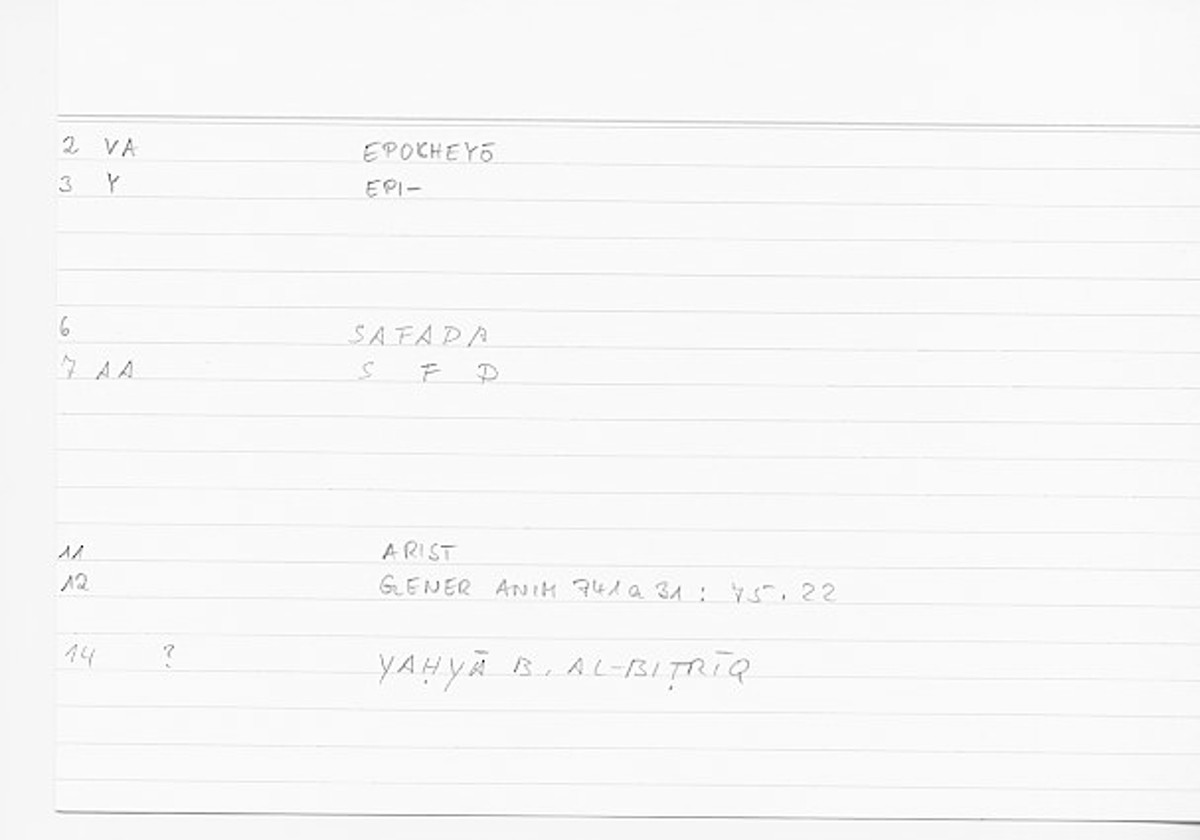 2 VA EPOCHEYŌ
3 Y EPI-
6 SAFADA
7 AA S F D
11 ARIST
12 GENER ANIM 741a 31 : 75.22
14 ? YAḤYĀ B. AL-BIṬRĪQ